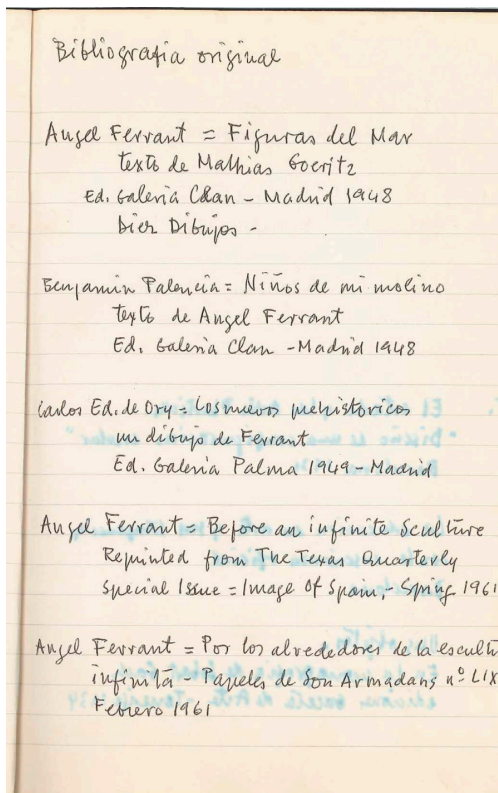 Bibliografia original
Angel Ferrant = Figuras del Mar
texto de Mathias Goeritz
Ed. Galeria Clan - Madrid 1948
Diez Dibujos -
Benjamin Palencia = Niños de mi molino
texto de Angel Ferrant
Ed. Galeria Clan - Madrid 1948
Carlos Ed. de Ory = Los nuevos prehistoricos
un dibujo de Ferrant
Ed. Galeria Palma 1949 - Madrid
Angel Ferrant = Before an infinite Sculture
Reprinted from The Texas Quarterly
Special Issue = Image Of Spain, - Spring 1961
Angel Ferrant = Por los alrededores de la escult
infinita - Papeles de Son Armadans nº LIX
Febrero 1961